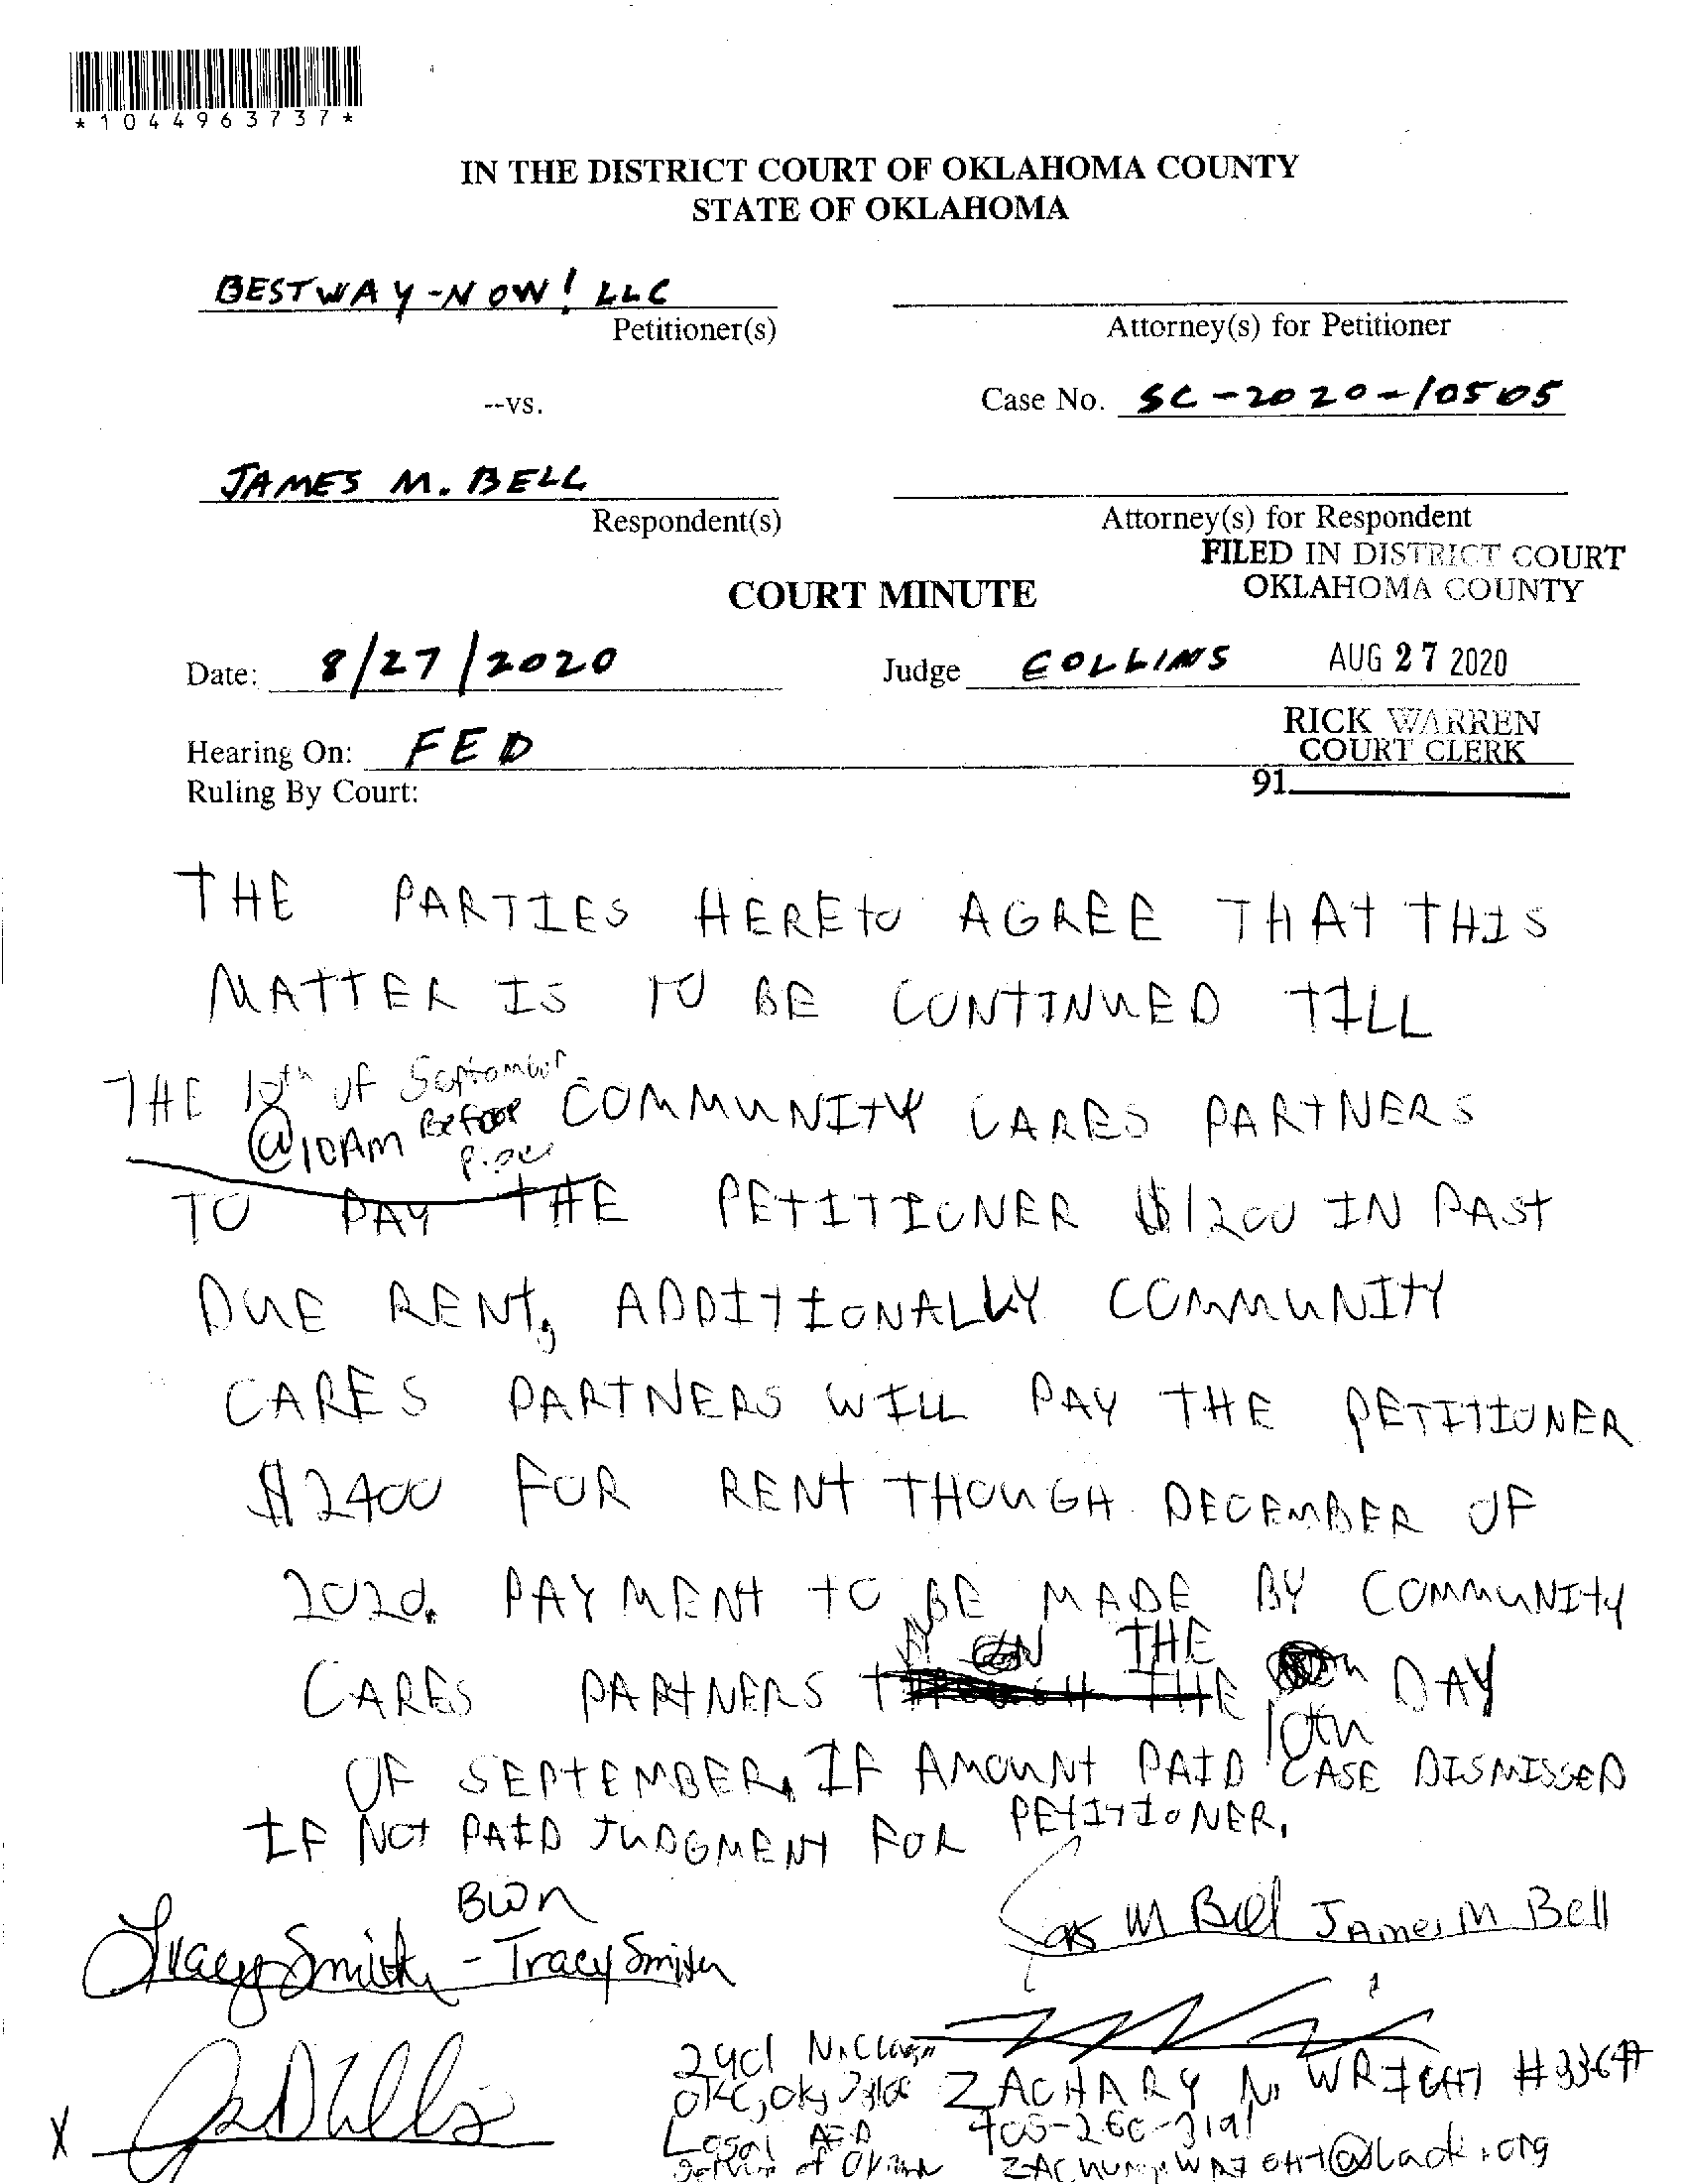 *1044963737*
IN THE DISTRICT COURT OF OKLAHOMA COUNTY
STATE OF OKLAHOMA
BESTWAY-NOW! LLC
Petitioner(s)
Attorney(s) for Petitioner
--vs.
Case No. SC-2020-10505
JAMES M. BELL
Respondent(s)
Attorney(s) for Respondent
FILED IN DISTRICT COURT
OKLAHOMA COUNTY
COURT MINUTE
Date: 8/27/2020
Judge COLLINS
AUG 27 2020
RICK WARREN
COURT CLERK
Hearing On: FED
91
Ruling By Court:
THE PARTIES HERETO AGREE THAT THIS
MATTER IS TO BE CONTINUED TILL
THE 10th OF September
@10AM Before
COMMUNITY CARES PARTNERS
TO PAY THE PETITIONER $1200 IN PAST
DUE RENT, ADDITIONALLY COMMUNITY
CARES PARTNERS WILL PAY THE PETITIONER
$2400 FOR RENT THOUGH DECEMBER OF
2020. PAYMENT TO BE MADE BY COMMUNITY
ON THE
CARES PARTNERS THROUGH THE DAY
10th
OF SEPTEMBER. IF AMOUNT PAID CASE DISMISSED
IF NOT PAID JUDGMENT FOR PETITIONER.
BWN
Tracy Smith - Tracy Smith
M Bell James M Bell
2901 N. Classen
OKC, Ok, ZACHARY N. WRIGHT
Legal Aid
X